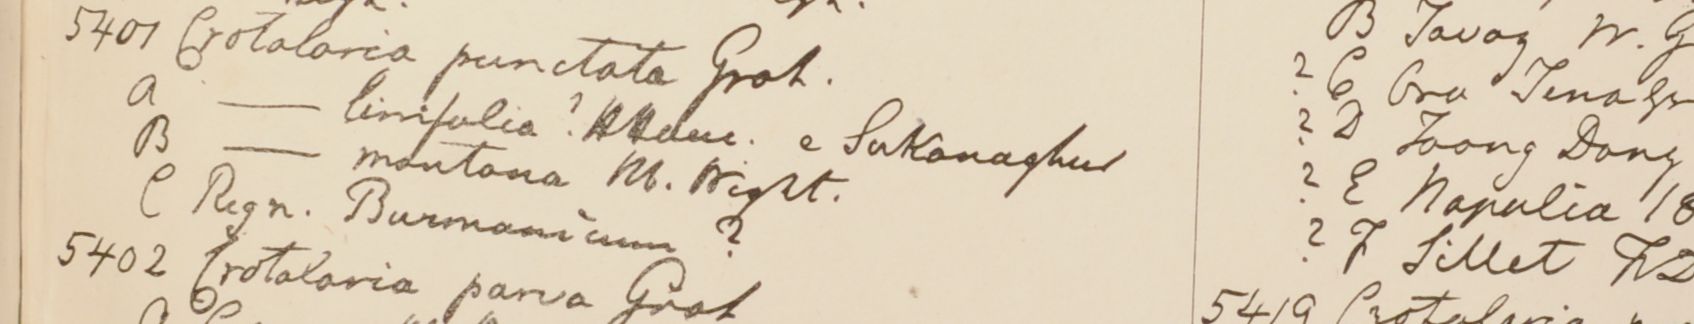 5401 Crotalaria punctata Grah.
A —— linifolia? e Sukanaghur
B —— montana M. Wight.
C Regn. Burmanicum ?
5402 Crotalaria parva Grah
B Tavoy W. G
? C Ora Tenass
? D Toong Dong
? E Napalia 18
? F Sillet
5419 Crotalaria